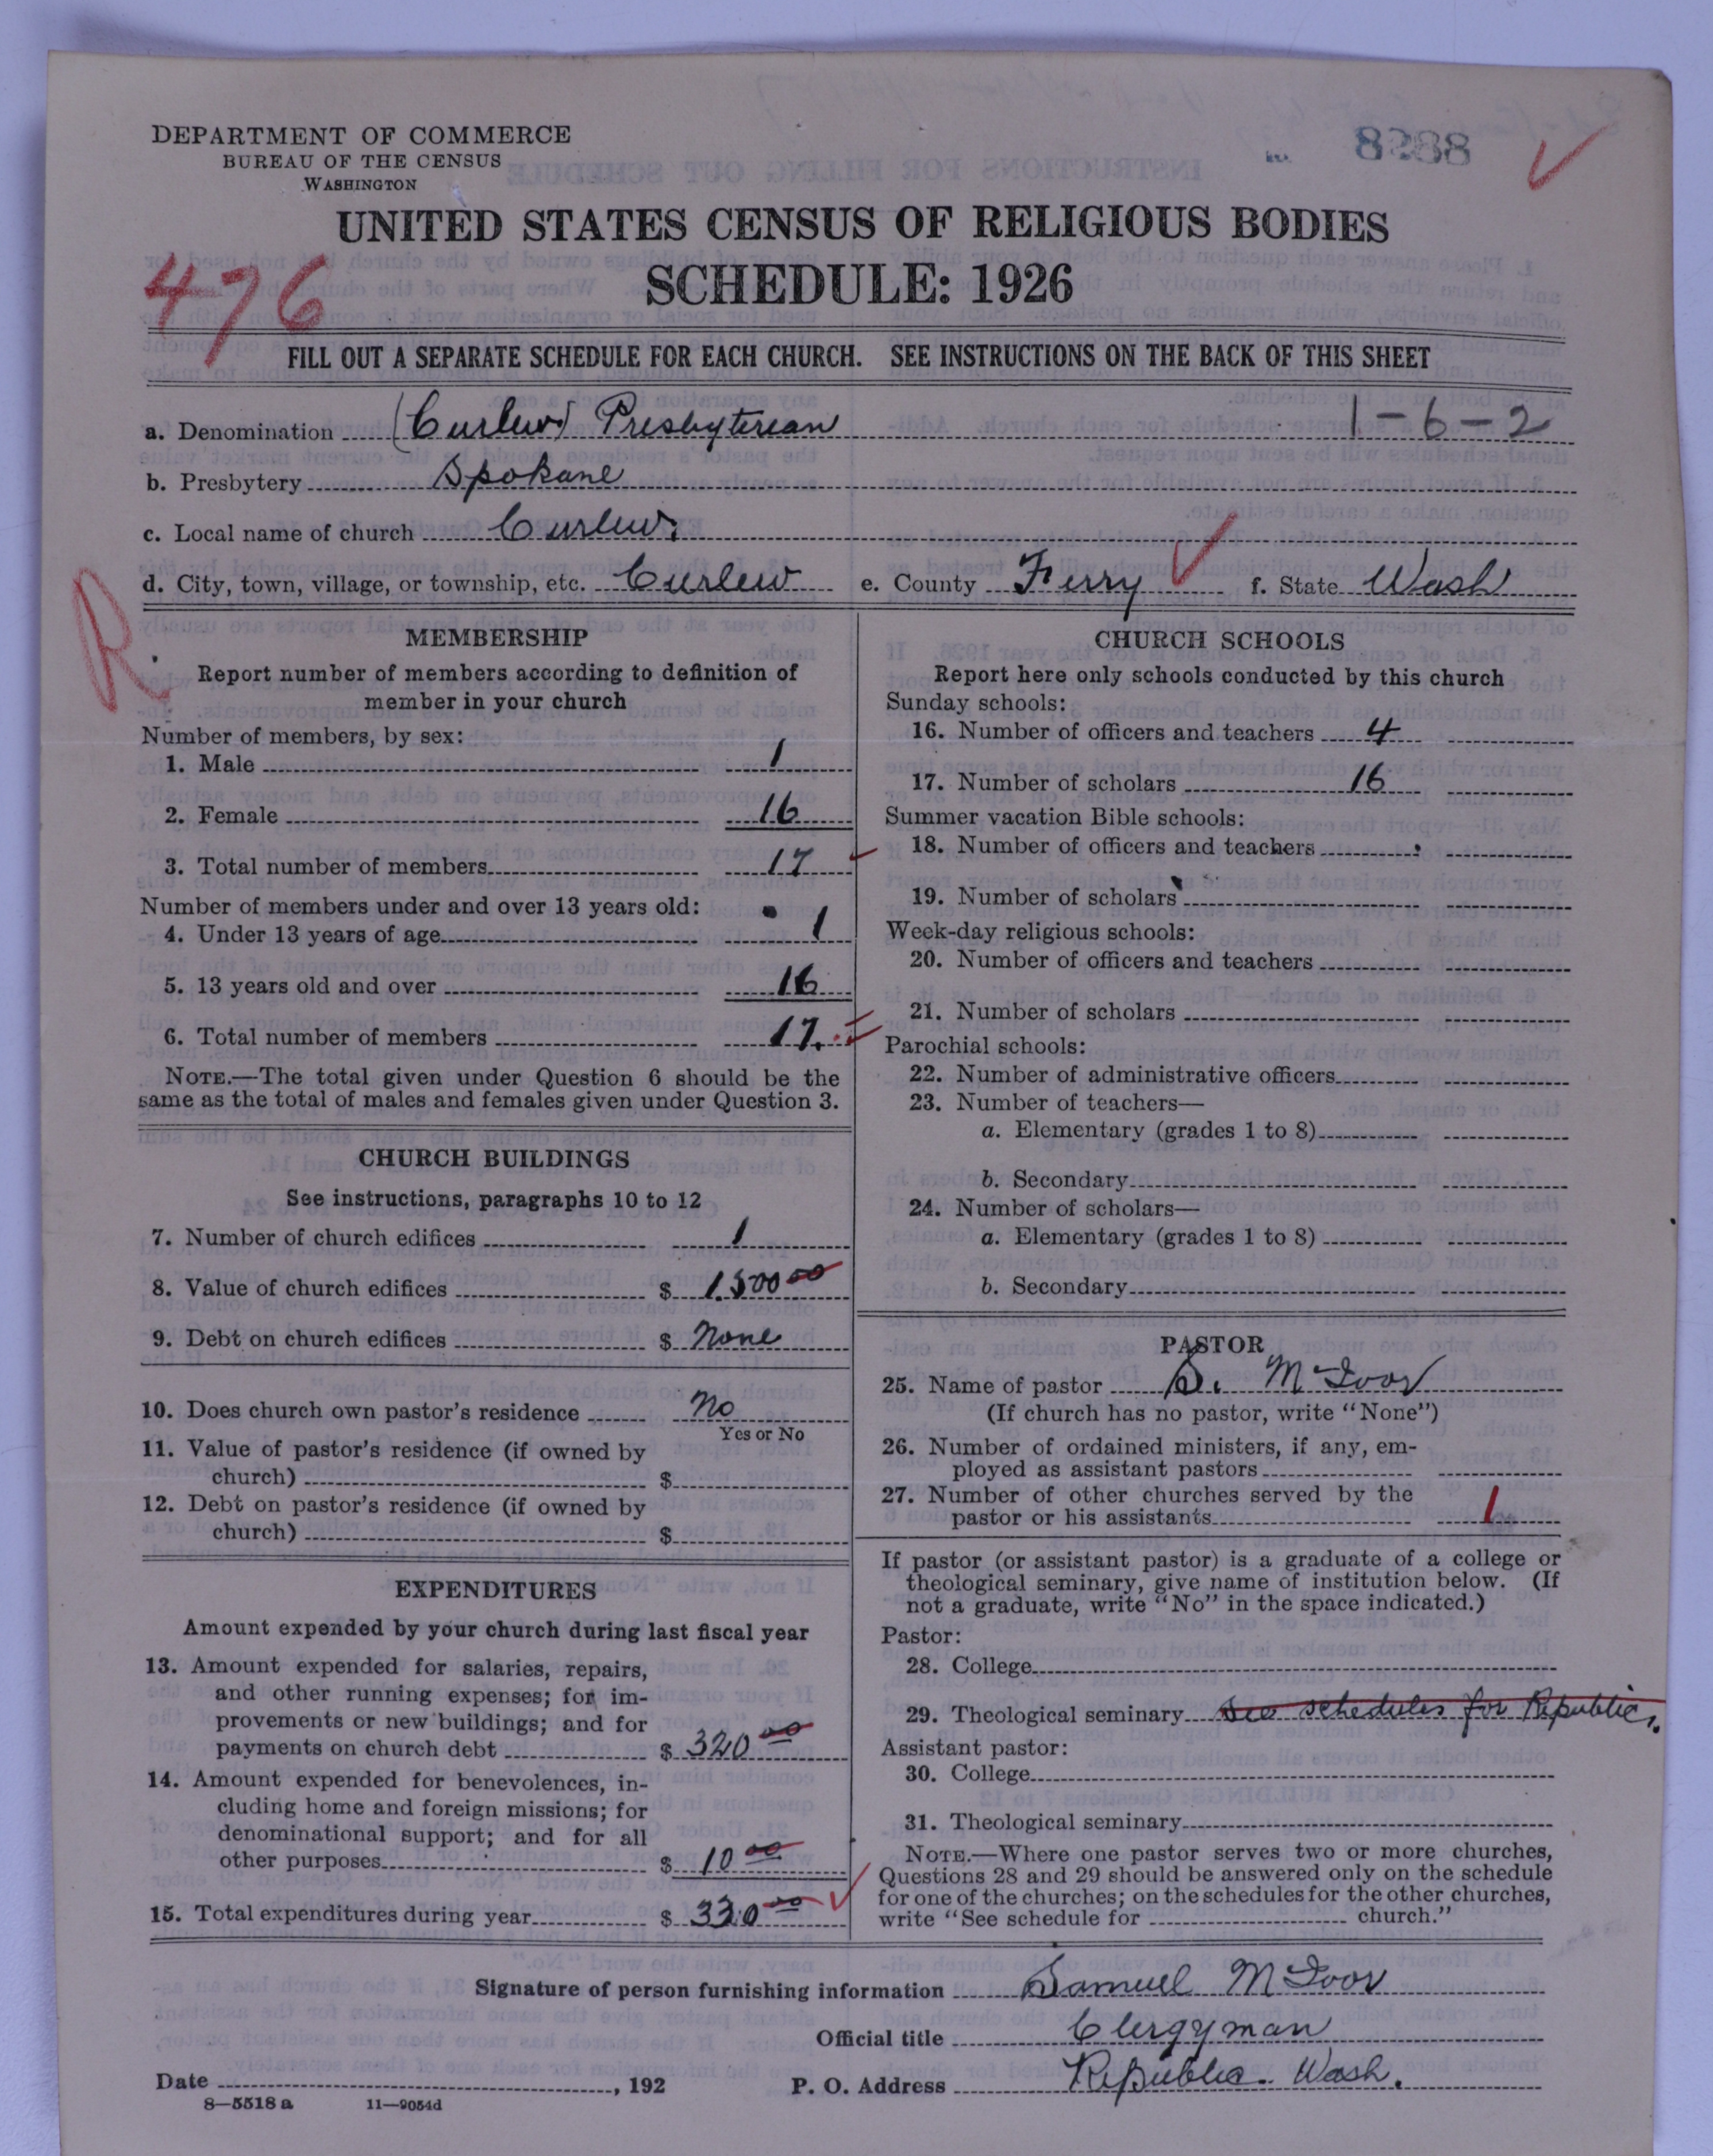 8288
DEPARTMENT OF COMMERCE
BUREAU OF THE CENSUS
WASHINGTON
UNITED STATES CENSUS OF RELIGIOUS BODIES
SCHEDULE: 1926
476
FILL OUT A SEPARATE SCHEDULE FOR EACH CHURCH. SEE INSTRUCTIONS ON THE BACK OF THIS SHEET
a. Denomination (Curlew) Presbyterian 1-6-2
b. Presbytery Spokane
c. Local name of church Curlew.
d. City, town, village, or township, etc. Curlew e. County Ferry f. State Wash
R
MEMBERSHIP
Report number of members according to definition of
member in your church
Number of members, by sex:
1. Male 1
2. Female 16
3. Total number of members 17
Number of members under and over 13 years old:
4. Under 13 years of age 1
5. 13 years old and over 16
6. Total number of members 17.
NOTE.—The total given under Question 6 should be the
same as the total of males and females given under Question 3.
CHURCH BUILDINGS
See instructions, paragraphs 10 to 12
7. Number of church edifices 1
8. Value of church edifices $ 1500 00
9. Debt on church edifices $ None
10. Does church own pastor's residence No
Yes or No
11. Value of pastor's residence (if owned by
church) $
12. Debt on pastor's residence (if owned by
church) $
EXPENDITURES
Amount expended by your church during last fiscal year
13. Amount expended for salaries, repairs,
and other running expenses; for im-
provements or new buildings; and for
payments on church debt $ 320 00
14. Amount expended for benevolences, in-
cluding home and foreign missions; for
denominational support; and for all
other purposes $ 10 00
15. Total expenditures during year $ 330 00
CHURCH SCHOOLS
Report here only schools conducted by this church
Sunday schools:
16. Number of officers and teachers 4
17. Number of scholars 16
Summer vacation Bible schools:
18. Number of officers and teachers
19. Number of scholars
Week-day religious schools:
20. Number of officers and teachers
21. Number of scholars
Parochial schools:
22. Number of administrative officers
23. Number of teachers—
a. Elementary (grades 1 to 8)
b. Secondary
24. Number of scholars—
a. Elementary (grades 1 to 8)
b. Secondary
PASTOR
25. Name of pastor S. McIvor
(If church has no pastor, write "None")
26. Number of ordained ministers, if any, em-
ployed as assistant pastors
27. Number of other churches served by the
pastor or his assistants 1
If pastor (or assistant pastor) is a graduate of a college or
theological seminary, give name of institution below. (If
not a graduate, write "No" in the space indicated.)
Pastor:
28. College
29. Theological seminary See schedules for Republic.
Assistant pastor:
30. College
31. Theological seminary
NOTE.—Where one pastor serves two or more churches,
Questions 28 and 29 should be answered only on the schedule
for one of the churches; on the schedules for the other churches,
write "See schedule for church."
Signature of person furnishing information Samuel McIvor
Official title Clergyman
Date , 192 P. O. Address Republic. Wash.
8—5518 a 11—9054d